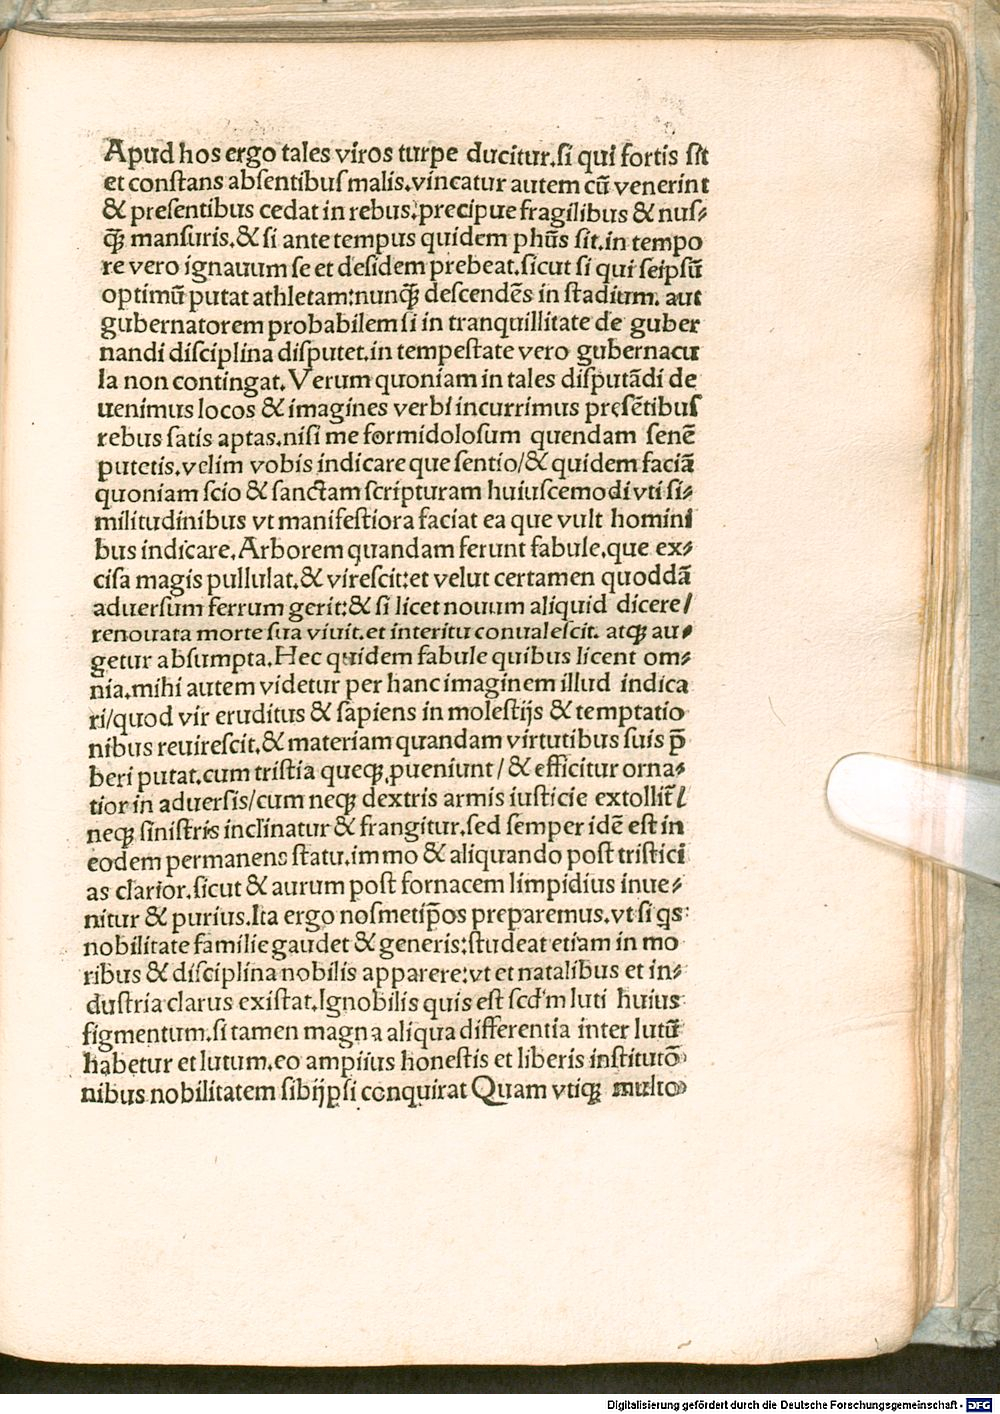 Apud hos ergo tales viros turpe ducitur.si qui fortis sit
et constans absentibus malis.vincatur autem cū venerint
& presentibus cedat in rebus:precipue fragilibus & nus⸗
q̄ꝫ mansuris.& si ante tempus quidem phūs sit.in tempo
re vero ignauum se et desidem prebeat.sicut si qui seipsū
optimū putat athletam:nunq̄ꝫ descendēs in stadium. aut
gubernatorem probabilem si in tranquillitate de guber
nandi disciplina disputet.in tempestate vero gubernacu
la non contingat. Verum quoniam in tales disputādi de
uenimus locos & imagines verbi incurrimus presētibus
rebus satis aptas.nisi me formidolosum quendam senē
putetis.velim vobis indicare que sentio/& quidem faciā
quoniam scio & sanctam scripturam huiuscemodi vti si⸗
militudinibus vt manifestiora faciat ea que vult homini
bus indicare.Arborem quandam ferunt fabule.que ex⸗
cisa magis pullulat.& virescit:et velut certamen quoddā
aduersum ferrum gerit:& si licet nouum aliquid dicere/
renouata morte sua viuit.et interitu conualescit. atqꝫ au⸗
getur absumpta.Hec quidem fabule quibus licent om⸗
nia.mihi autem videtur per hanc imaginem illud indica
ri/quod vir eruditus & sapiens in molestijs & temptatio
nibus reuirescit.& materiam quandam virtutibus suis p̄
beri putat.cum tristia queqꝫ ꝓueniunt/& efficitur orna⸗
tior in aduersis/cum neqꝫ dextris armis iusticie extollit̄/
neqꝫ sinistris inclinatur & frangitur.sed semper idē est in
eodem permanens statu.immo & aliquando post tristici
as clarior.sicut & aurum post fornacem limpidius inue⸗
nitur & purius.Ita ergo nosmetip̄os preparemus.vt si qs
nobilitate familie gaudet & generis:studeat etiam in mo
ribus & disciplina nobilis apparere:vt et natalibus et in⸗
dustria clarus existat.Ignobilis quis est scd'm luti huius
figmentum.si tamen magna aliqua differentia inter lutū
habetur et lutum.eo amplius honestis et liberis institutō
nibus nobilitatem sibijpsi conquirat Quam vtiqꝫ multo
Digitalisierung gefördert durch die Deutsche Forschungsgemeinschaft - DFG